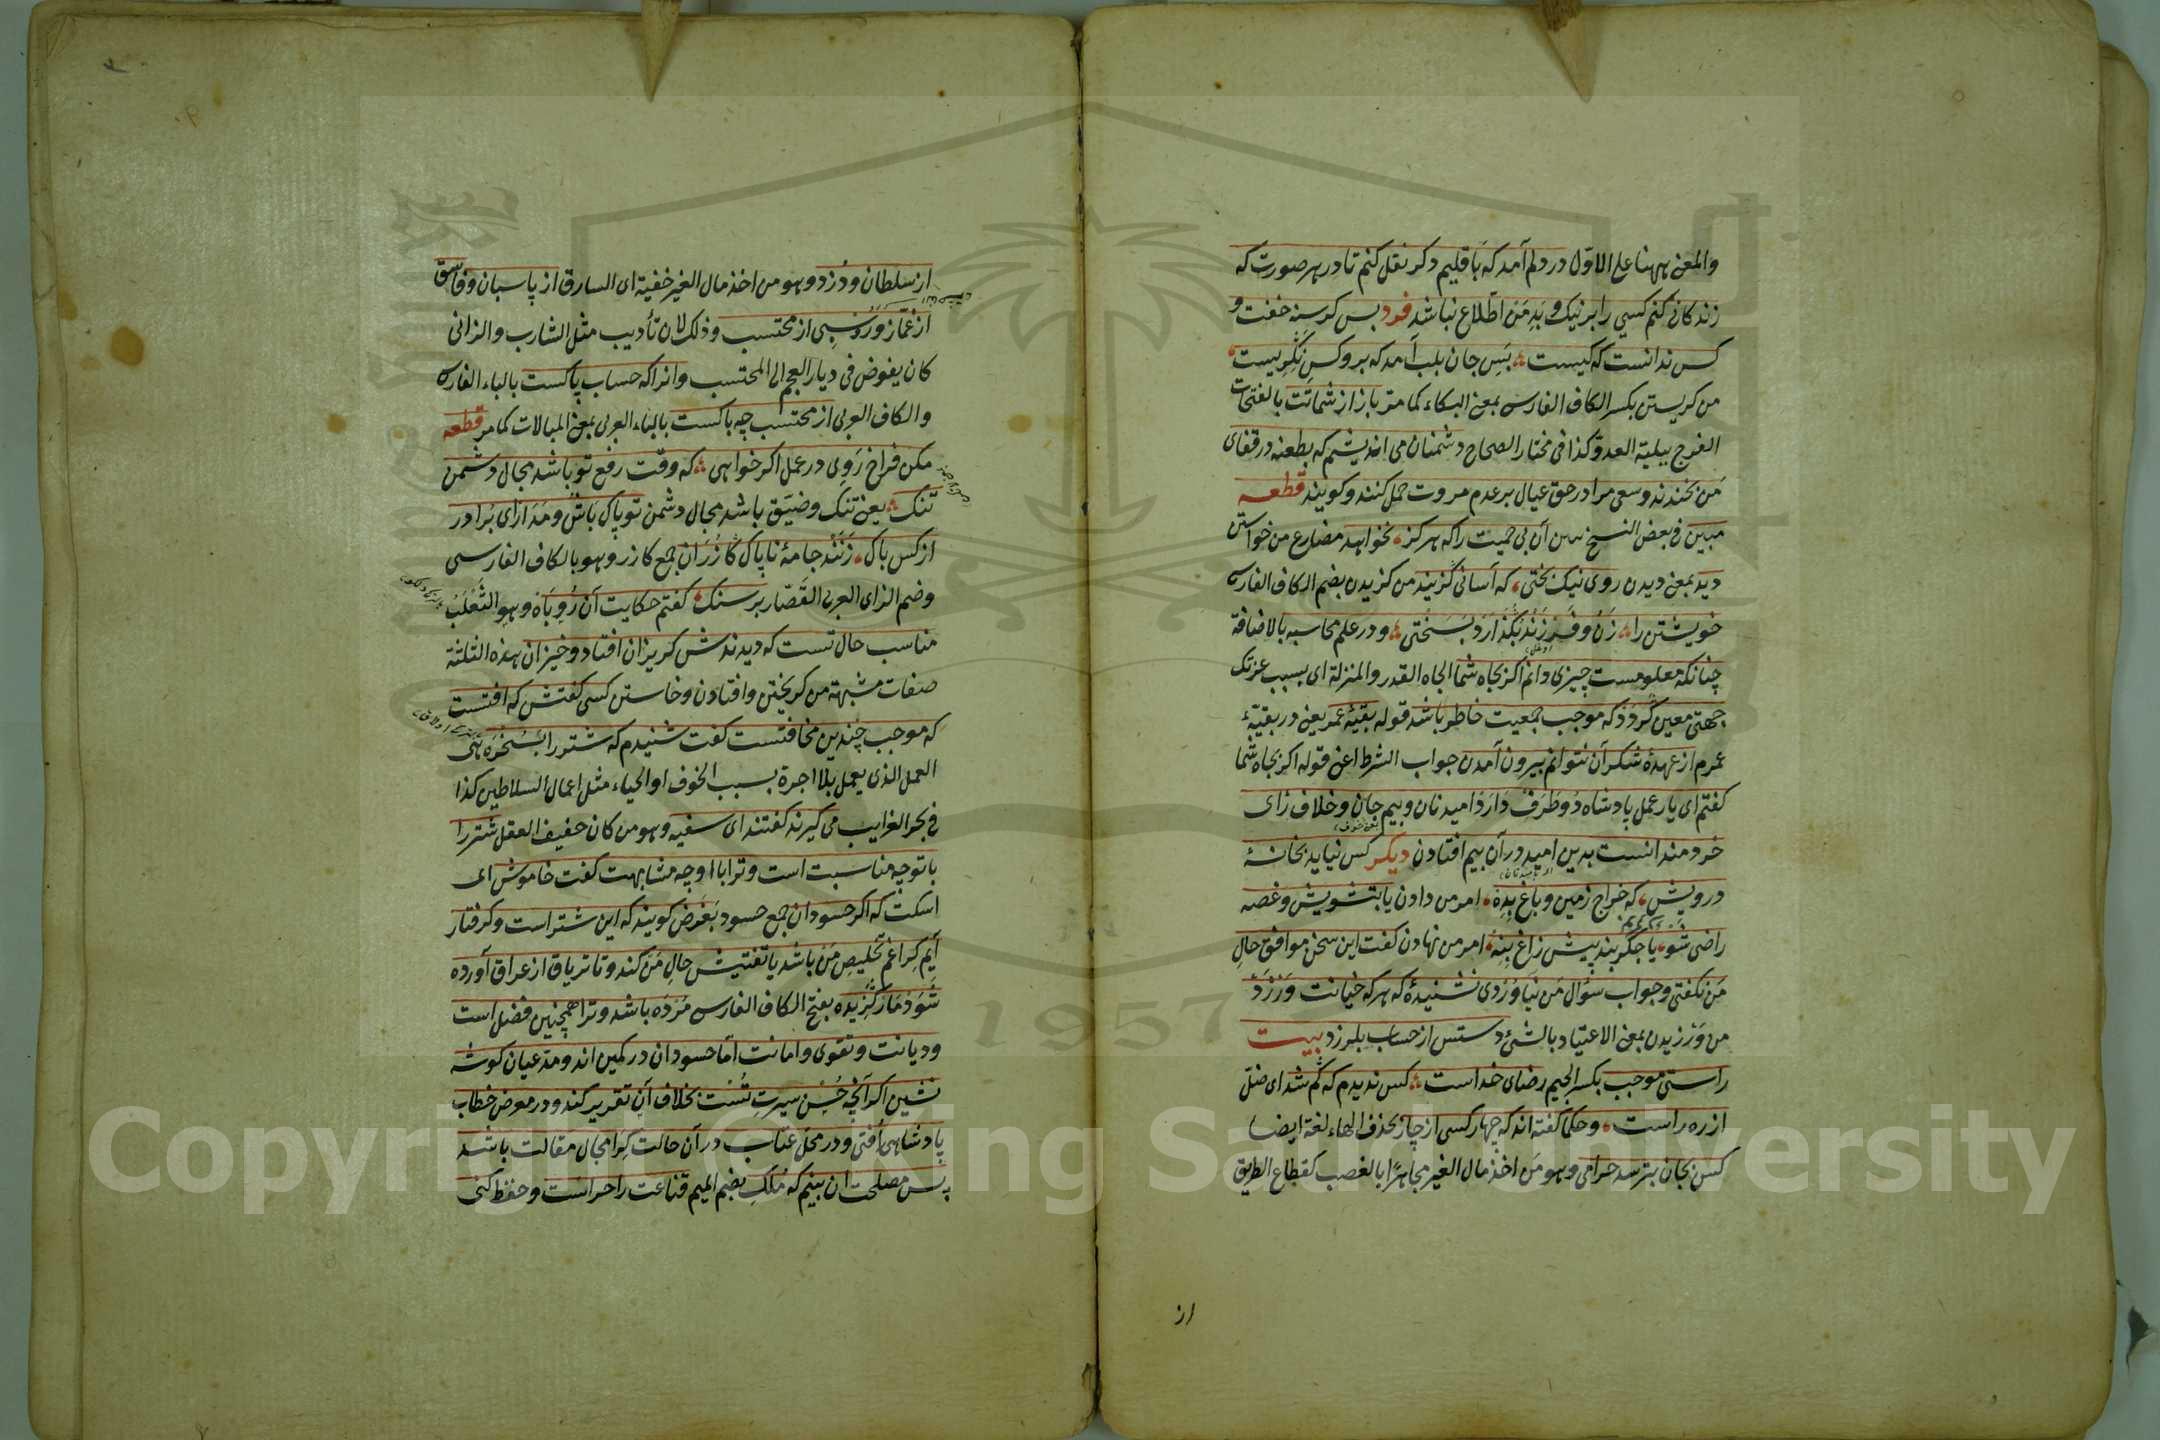 والمعنى ههنا على الاوّل در دلم آمد كه باقليم دكر نقل كنم تا در هر صورت كه
زندكانى كنم كسى را بر نيك و بد من اطّلاع نباشد فرد بس كرسنه خفت و
كس ندانست كه كيست بس جان بلب آمد كه برو كس نكريست
من كريستن بكسر الكاف الفارسى بمعنى البكاء كما مر باز از شماتت بالفتحات
الفرح ببلية العدو كذا فى مختار الصحاح دشمنان مى انديشم كه بطعنه در قفاى
من بخندند وسعى مرا در حق عيال بر عدم مروت حمل كنند وكويند قطعه
مبين فى بعض النسخ ببين آن بى حميت را كه هركز نخواهد مضارع من خواستن
ديد بمعنى ديدن روى نيك بختى كه آسانى كزيند من كزيدن بضم الكاف الفارسى
خويشتن را زن و فرزند بكذارد بسختى و در علم محاسبه بالاضافة
چنانكه معلومست چيزى دانم اكر بجاه شما الجاه القدر والمنزلة اى بسبب عزتك
جهتى معين كردد كه موجب جمعيت خاطر باشد قوله بقيهٔ عمر يعنى در بقيّهٔ
عمرم از عهدهٔ شكر آن نتوانم بيرون آمدن جواب الشرط اعنى قوله اكر بجاه شما
كفتم اى يار عمل پادشاه دو طرف دارد اميد نان و بيم جان و خلاف راى
خردمندانست بدين اميد در آن بيم افتادن ديكر كس نيايد بخانهٔ
درويش كه خراج زمين و باغ بده امر من دادن يا بتشويش و غصه
راضى شو يا جكر بند پيش زاغ بنه امر من نهادن كفت اين سخن موافق حال
من نكفتى وجواب سؤال من نياوردى نشنيدهٔ كه هر كه خيانت ورزد
من ورزيدن بمعنى الاعتياد بالشىء دستش از حساب بلرزد بيت
راستى موجب بكسر الجيم رضاى خداست كس نديدم كه كم شد اى ضل
از ره راست وحكما كفته اند كه چهار كس از چهار بحذف الهاء لغة ايضا
كس بجان بترسد حرامى وهو من اخذ مال الغير مجاهرا بالغصب كقطاع الطريق
از
از سلطان و دزد وهو من اخذ مال الغير خفية اى السارق از پاسبان وفاسق
از غماز و روسپى از محتسب وذلك لان تأديب مثل الشارب والزانى
كان يفوض فى ديار العجم الى المحتسب وانرا كه حساب پاكست بالباء الفارسى
والكاف العربى از محتسب چه باكست بالباء العربى بمعنى المبالات كما مر قطعه
مكن فراخ روى در عمل اكر خواهى كه وقت رفع تو باشد مجال دشمن
تنك يعنى تنك وضيق باشد مجال دشمن تو پاك باش و مدار اى برادر
از كس باك زنند جامهٔ ناپاك كازران جمع كازر وهو بالكاف الفارسى
وضم الزاى العربى القصّار بر سنك كفتم حكايت آن روباه وهو الثعلب
مناسب حال تست كه ديدندش كريزان افتاد وخيزان هذه الثلثة
صفات مشبهة من كريختن وافتادن وخاستن كسى كفتش كه افتست
كه موجب چندين مخافتست كفت شنيدم كه شتر را بسخره هى
العمل الذى يعمل بلا اجرة بسبب الخوف او الحياء مثل اعمال السلاطين كذا
فى بحر الغرايب مى كيرند كفتند اى سفيه وهو من كان خفيف العقل شتر را
با تو چه مناسبت است وترا با او چه مشابهت كفت خاموش اى
اسكت كه اكر حسودان جمع حسود بغرض كويند كه اين شتر است وكرفتار
آيم كرا غم تخليص من باشد يا تفتيش حال من كند وتا ترياق از عراق آورده
شود مار كزيده بفتح الكاف الفارسى مرده باشد وترا همچنين فضل است
وديانت وتقوى وامانت اما حسودان در كمين اند ومدعيان كوشه
نشين اكر آنچه حسن سيرت تست بخلاف آن تقرير كنند ودر معرض خطاب
پادشاهى افتى ودر محل عتاب در آن حالت كرا مجال مقالت باشد
پس مصلحت آن بينم كه ملك بضم الميم قناعت را حراست وحفظ كنى